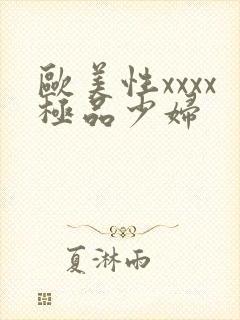 歐美性xxxx
極品少婦
夏淋雨